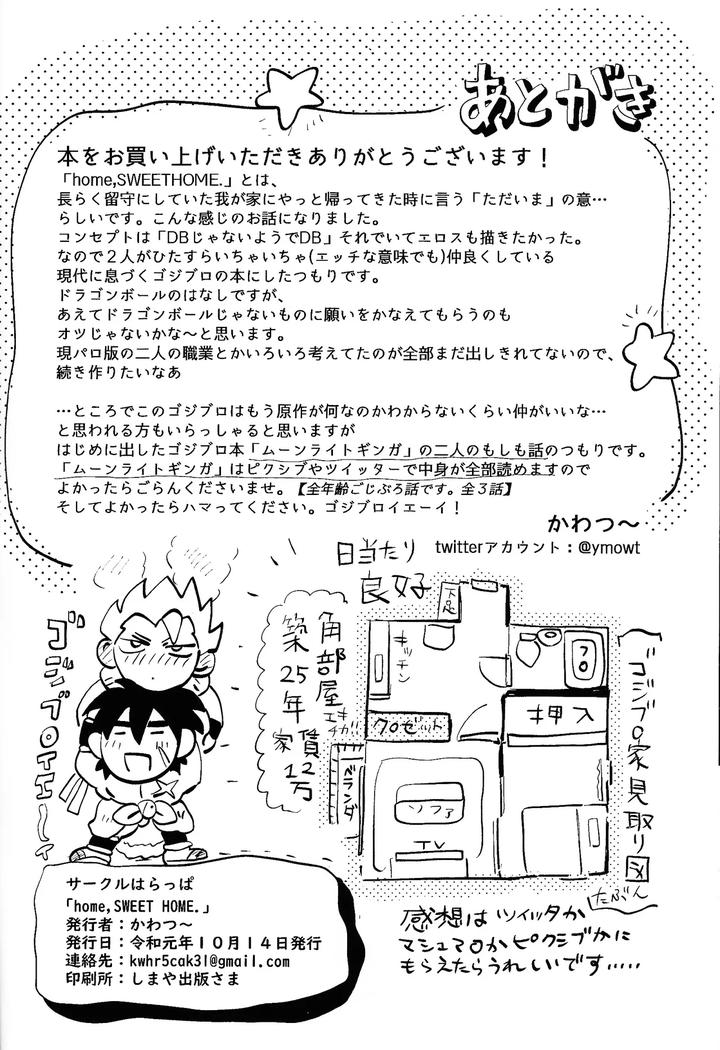 あとがき
本をお買い上げいただきありがとうございます！
「home,SWEETHOME.」とは、
長らく留守にしていた我が家にやっと帰ってきた時に言う「ただいま」の意…
らしいです。こんな感じのお話になりました。
コンセプトは「DBじゃないようでDB」それでいてエロスも描きたかった。
なので２人がひたすらいちゃいちゃ(エッチな意味でも)仲良くしている
現代に息づくゴジブロの本にしたつもりです。
ドラゴンボールのはなしですが、
あえてドラゴンボールじゃないものに願いをかなえてもらうのも
オツじゃないかな〜と思います。
現パロ版の二人の職業とかいろいろ考えてたのが全部まだ出しきれてないので、
続き作りたいなあ
…ところでこのゴジブロはもう原作が何なのかわからないくらい仲がいいな…
と思われる方もいらっしゃると思いますが
はじめに出したゴジブロ本「ムーンライトギンガ」の二人のもしも話のつもりです。
「ムーンライトギンガ」はピクシブやツイッターで中身が全部読めますので
よかったらごらんくださいませ。【全年齢ごじぶろ話です。全３話】
そしてよかったらハマってください。ゴジブロイエーイ！
かわつ〜
twitterアカウント：@ymowt
日当たり
良好
ゴジブロイエーイ
角部屋
築25年
家賃12万
下足
キッチン
クロゼット
押入
フロ
ベランダ
ソファ
TV
ゴジブロ家見取り図
たぶん
感想はツイッタか
マシュマロかピクシブかに
もらえたらうれしいです.....
サークルはらっぱ
「home,SWEET HOME.」
発行者：かわつ〜
発行日：令和元年１０月１４日発行
連絡先：kwhr5cak31@gmail.com
印刷所：しまや出版さま